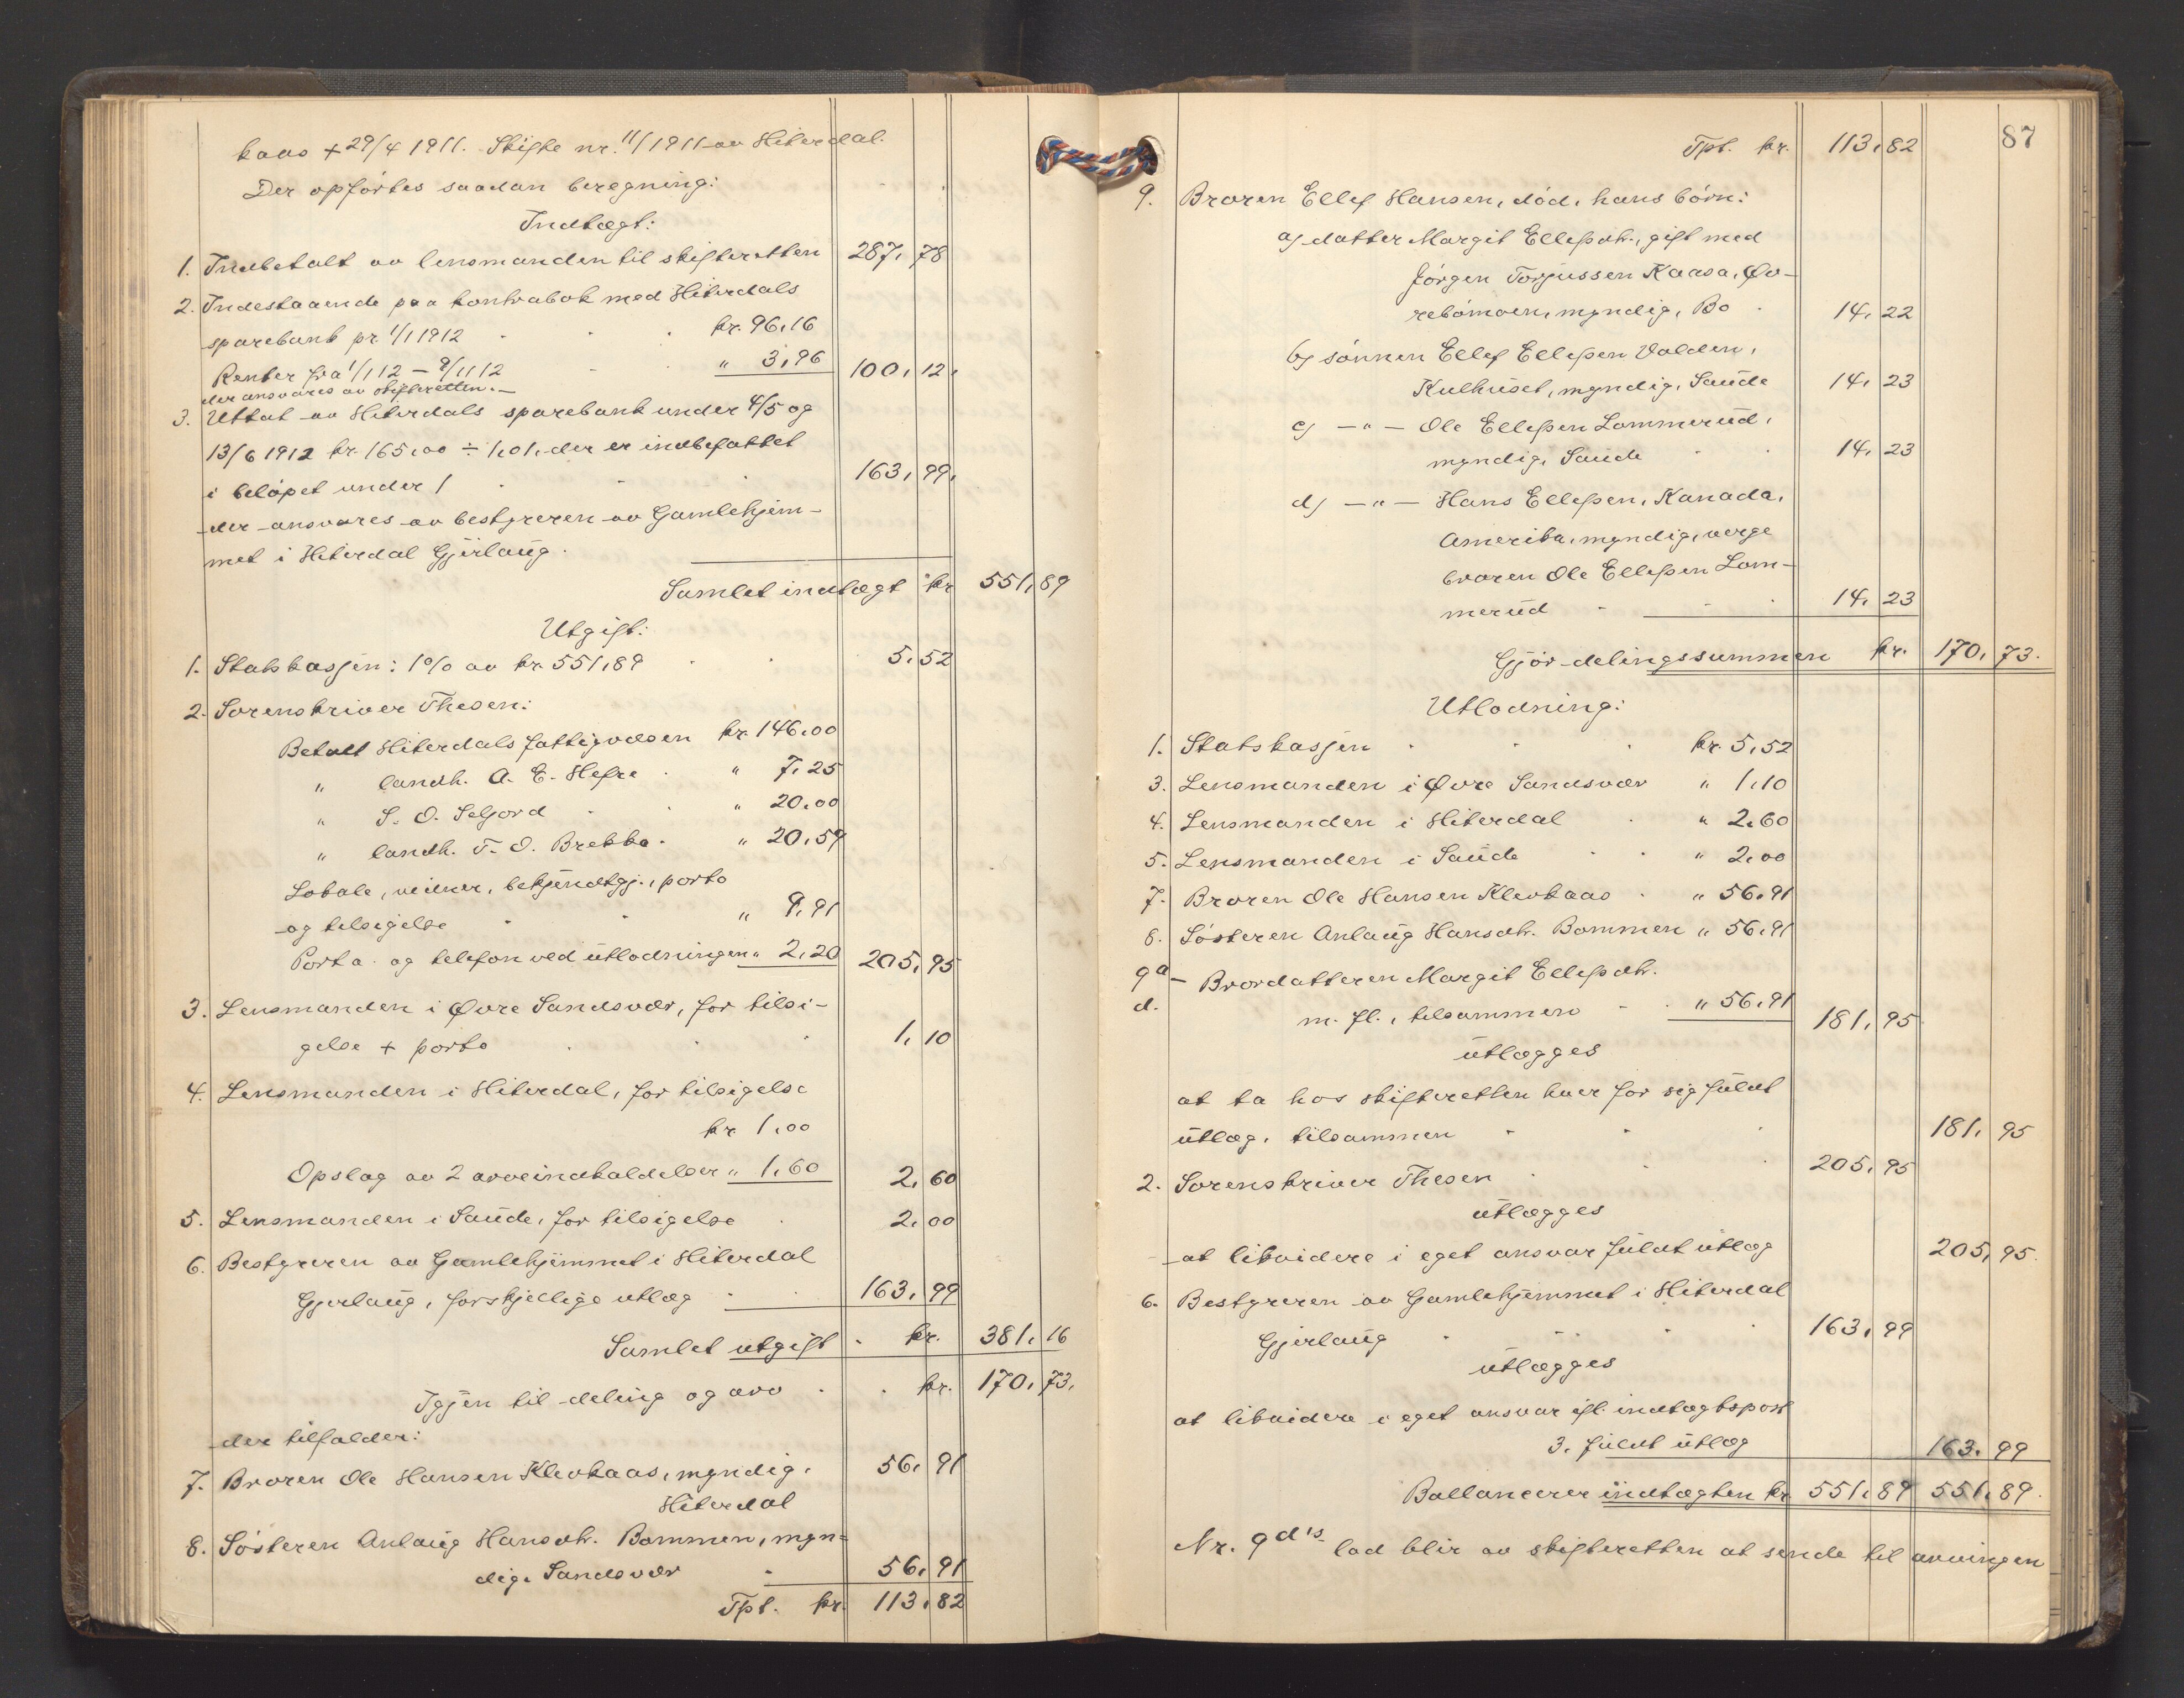 kaas + 29/4 1911. Skifte nr. 11/1911 av Hiterdal.
Der opførtes saadan beregning:
Indtægt:
1. Indbetalt av lensmanden til skifteretten 287, 78
2. Indestaaende paa kontrabok med Hiterdals
sparebank pr 1/1 1912 kr. 96,16
Renter fra 1/1 12 – 9/11 12 " 3,96 100, 12,
der ansvares av skifteretten. –
3. Uttat av Hiterdals sparebank under 4/5 og
13/6 1912 kr. 165,00 ÷ 1,01, der er indbefattet
i beløpet under 1 163, 99,
der ansvares av bestyreren av Gamlehjem-
met i Hiterdal Gjerlaug.
Samlet indtægt kr 551,89
Utgift:
1. Statskassen: 1% av kr. 551,89 5,52
2. Sorenskriver Thesen:
Betalt Hiterdals fattigvæsen kr. 146,00
" landh. A. E. Hefre " 7,25
" S. O. Seljord " 20,00
" landh. T. O. Brekka " 20,59
Lokale, vidner, bekjendtgj., porto
og tilsigelse " 9,91
Porto og telefon ved utlodningen " 2,20 205, 95
3. Lensmanden i Øvre Sandsvær, for tilsi-
gelse + porto 1, 10
4. Lensmanden i Hiterdal, for tilsigelse
kr 1,00
Opslag av 2 arveindkaldelser " 1,60 2, 60
5. Lensmanden i Saude, for tilsigelse 2,00
6. Bestyreren av Gamlehjemmet i Hiterdal
Gjerlaug, forskjellige utlæg 163, 99
Samlet utgift kr. 381, 16
Igjen til deling og arv kr. 170, 73,
der tilfalder:
7. Broren Ole Hansen Klevkaas, myndig, 56, 91
Hiterdal
8. Søsteren Anlaug Hansdtr. Bommen, myn-
dig. Sandsvær 56, 91
Tpt. kr. 113,82
87
Tpt. kr. 113,82
9. Broren Ellef Hansen, død, hans børn:
a) datter Margit Ellefsdtr., gift med
Jørgen Torjussen Kaasa, Øv-
rebømoen, myndig, Bø 14, 22
b) sønnen Ellef Ellefsen Valden,
Kulhuset, myndig, Saude 14, 23
c) – " – Ole Ellefsen Lommerud,
myndig, Saude 14, 23
d) – " – Hans Ellefsen, Kanada,
Amerika, myndig, verge
broren Ole Ellefsen Lom-
merud 14, 23
Gjør delingssummen kr. 170, 73.
Utlodning:
1. Statskassen kr. 5,52
3. Lensmanden i Øvre Sandsvær " 1,10
4. Lensmanden i Hiterdal " 2,60
5. Lensmanden i Saude " 2,00
7. Broren Ole Hansen Klevkaas " 56,91
8. Søsteren Anlaug Hansdtr. Bommen " 56,91
9a – Brordatteren Margit Ellefsdtr.
d. m. fl., tilsammen " 56,91 181, 95
utlægges
at ta hos skifteretten hver for sig fuldt
utlæg, tilsammen 181, 95
2. Sorenskriver Thesen 205, 95
utlægges
at likvidere i eget ansvar fuldt utlæg 205, 95.
6. Bestyreren av Gamlehjemmet i Hiterdal
Gjerlaug 163, 99
utlægges
at likvidere i eget ansvar ifl. indtægtspost
3. fuldt utlæg 163, 99
Ballancerer indtægten kr. 551,89 551,89.
Nr. 9 d's lod blir av skifteretten at sende til arvingen